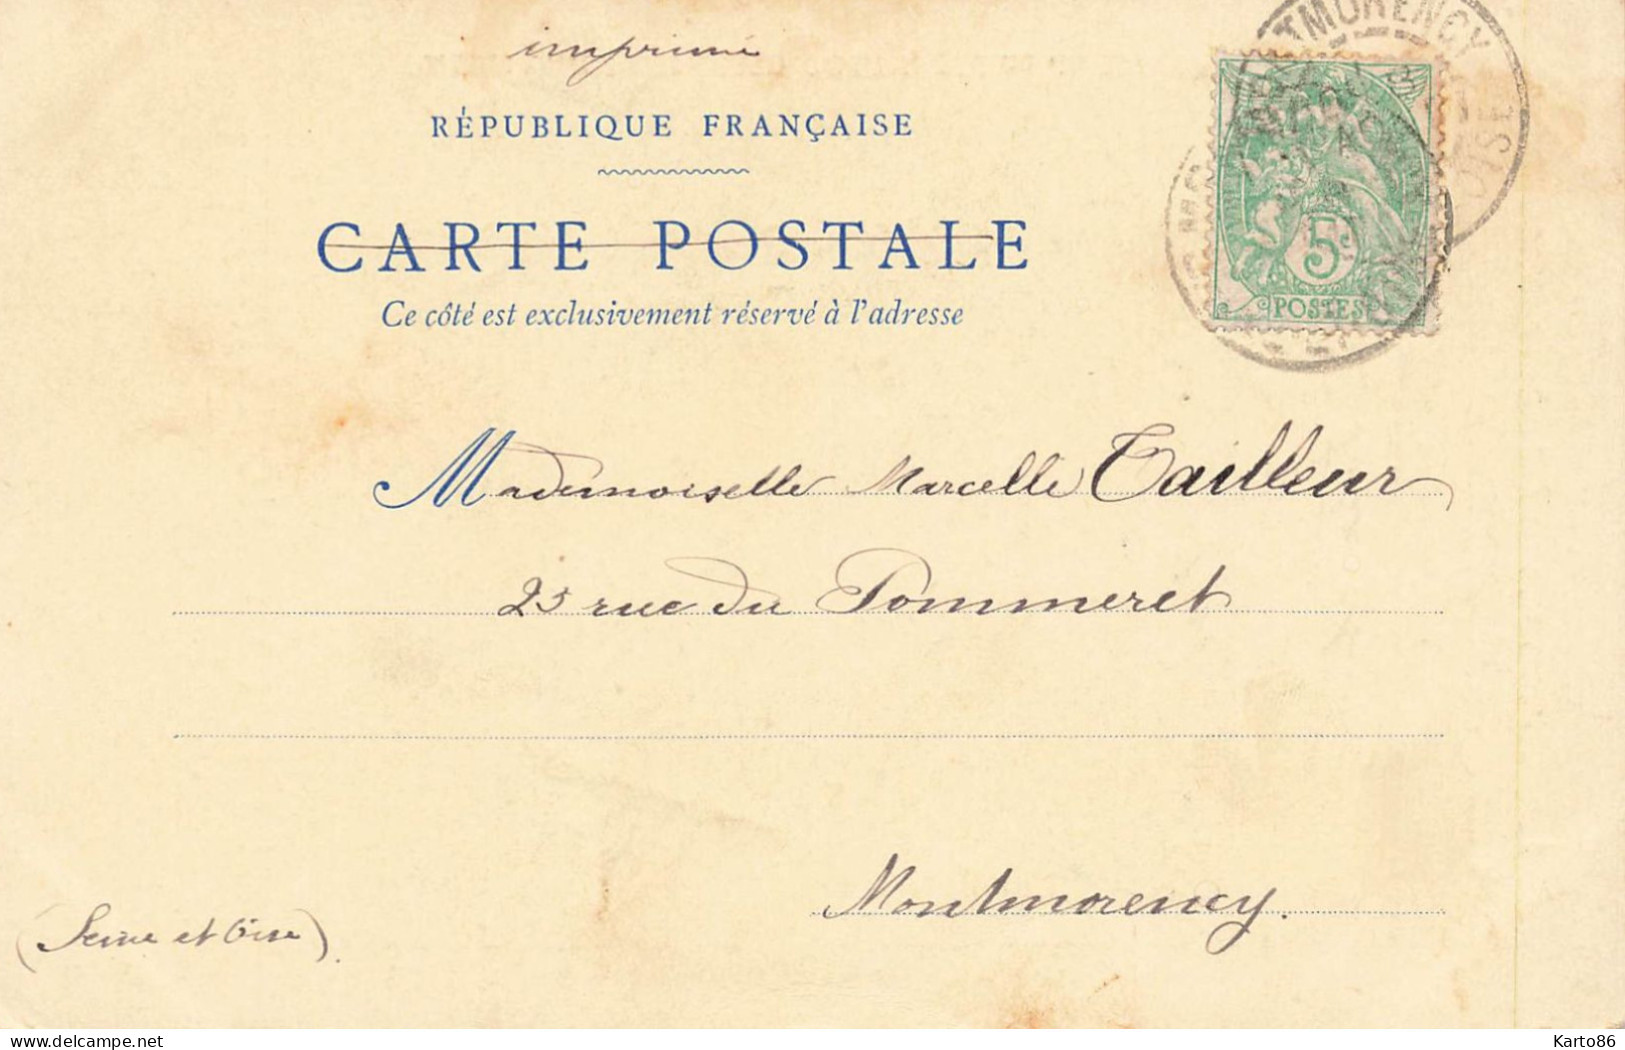 imprimé
RÉPUBLIQUE FRANÇAISE
CARTE POSTALE
Ce côté est exclusivement réservé à l'adresse
5c
POSTES
TMORENCY
OISE
Mademoiselle Marcelle Tailleur
25 rue du Pommeret
Montmorency.
(Seine et Oise).
delcampe.net
Karto86